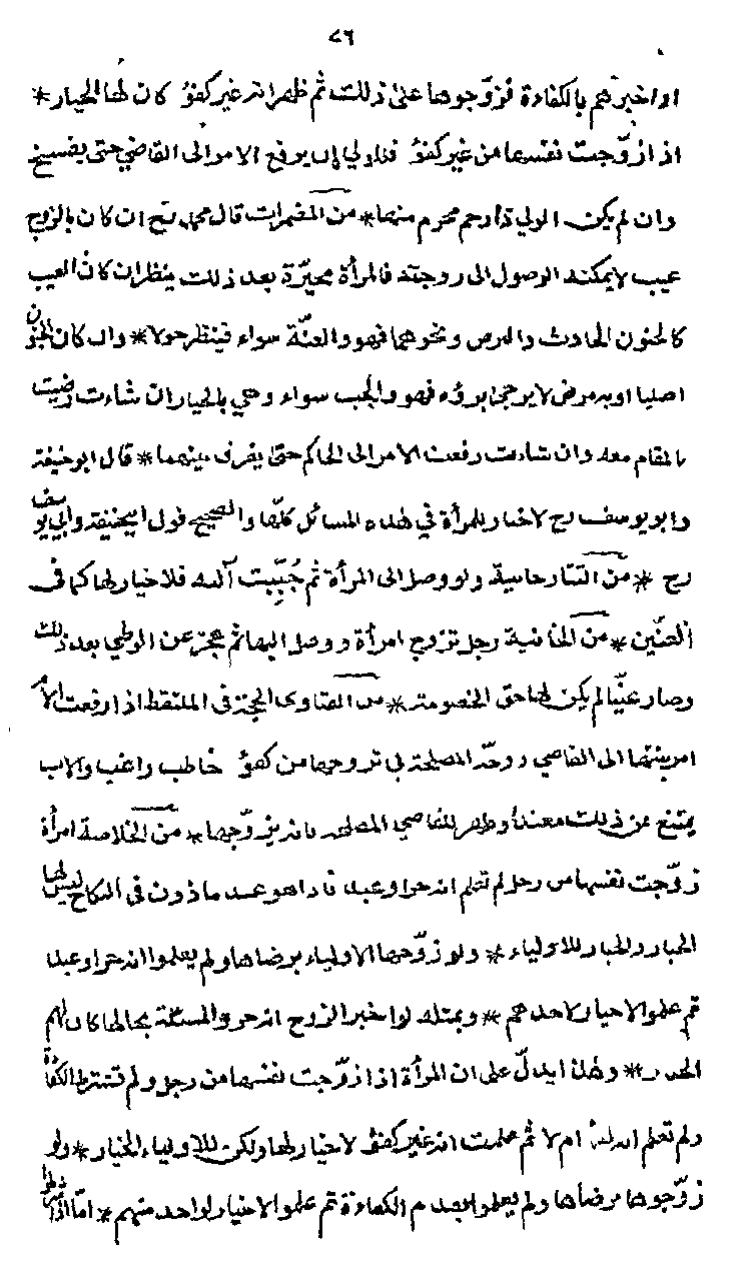 ٧٦
او اخبرهم بالكفاءة فزوّجوها على ذلك ثم ظهر انه غير كفؤ كان لها الخيار *
اذا زوّجت نفسها من غير كفؤ فللولي ان يرفع الامر الى القاضي حتى يفسخ
وان لم يكن الولي ذا رحم محرم منها * من المضمرات قال محمد رح ان كان بالزوج
عيب لا يمكنه الوصول الى زوجته فالمرأة مخيّرة بعد ذلك ينظر ان كان العيب
كالجنون الحادث والبرص ونحوهما فهو والعنّة سواء فينظر حولا * وان كان الجنون
اصليا او به مرض لا يرجى ابرؤه فهو والجب سواء وهي بالخيار ان شاءت رضيت
بالمقام معه وان شاءت رفعت الامر الى الحاكم حتى يفرق بينهما * قال ابو حنيفة
وابو يوسف رح لا خيار للمرأة في هذه المسائل كلّها والصحيح قول ابيحنيفة وابي يوسف
رح * من التتارخانية ولو وصل الى المرأة ثم جُبِّبت آلته فلا خيار لها كما في
العنّين * من الخانية رجل تزوج امرأة ووصل اليها ثم عجز عن الوطي بعد ذلك
وصار عنّينا لم يكن لها حق الخصومة * من الفتاوى الحجة في الملتقط اذا رفعت الأ
امر بنتها الى القاضي ووجد المصلحة في تزوجها من كفؤ خاطب راغب والاب
يمتنع عن ذلك وظهر للقاضي المصلحة فانه يزوّجها * من الخلاصة امرأة
زوّجت نفسها من رجل لم تعلم انه حر او عبد فاذا هو عبد ماذون في النكاح ليس لها
الخيار والخيار للاولياء * ولو زوّجها الاولياء برضاها ولم يعلموا انه حر او عبد
ثم علموا لا خيار لاحدهم * وبمثله لو اخبر الزوج انه حر والمسئلة بحالها كان لهم
الخيار * وهذا يدلّ على ان المرأة اذا زوّجت نفسها من رجل ولم تشترط الكفاءة
ولم تعلم انه كفؤ ام لا ثم علمت انه غير كفؤ لا خيار لها ولكن للاولياء الخيار * ولو
زوّجوها برضاها ولم يعلموا بعدم الكفاءة ثم علموا لا خيار لواحد منهم * امّا اذا